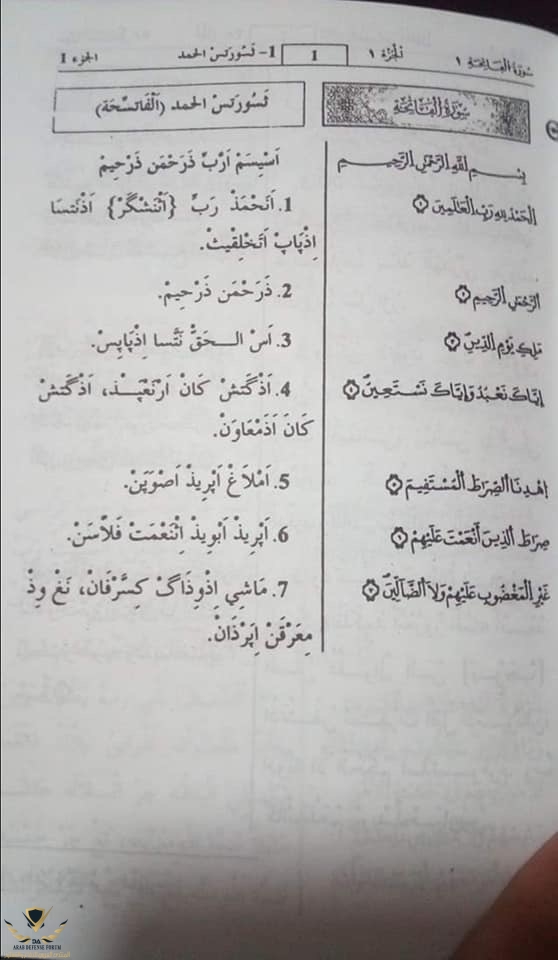 سورة الفاتحة ١ الجزء ١ 1 1- تسورتس الحمد الجزء 1
سورة الفاتحة
تسورتس الحمد (الْفَاتسْحَة)
بسم الله الرحمن الرحيم
اَسِيسَمْ اَرْبِّ ذَرَحْمَن ذَرْحِيمْ
الحمد لله رب العلمين
1. اَنَحْمَذْ رَبِّ {اَنَّشْگَرْ} اَذْنَتسَا
اِذْپَاپْ اَتَخْلِقِيثْ.
الرحمن الرحيم
2. ذَرَحْمَن ذَرْحِيمْ.
ملك يوم الدين
3. اَسْ الـحَقْ نَتَّسا اِذْپَاپِسْ.
إياك نعبد وإياك نستعين
4. اَذْگَتشْ كَانْ اَرْنَعْپَـذْ، اَذْگَتشْ
كَانْ اَذَمْعَاوَنْ.
اهدنا الصرط المستقيم
5. اَمْلاَغْ اَپْرِيذْ اَصْوَپَنْ.
صرط الذين أنعمت عليهم
6. اَپْرِيذْ اَبْوِيذْ اِثْنَعْمَتْ فَلاَّسَنْ.
غير المغضوب عليهم ولا الضالين
7. مَاشِي اِذْوِذَاگْ كِسَّرْفَانْ، نَغْ وِذْ
مِعَرْقَنْ اِپَرْذَانْ.
DA
ARAB DEFENSE FORUM